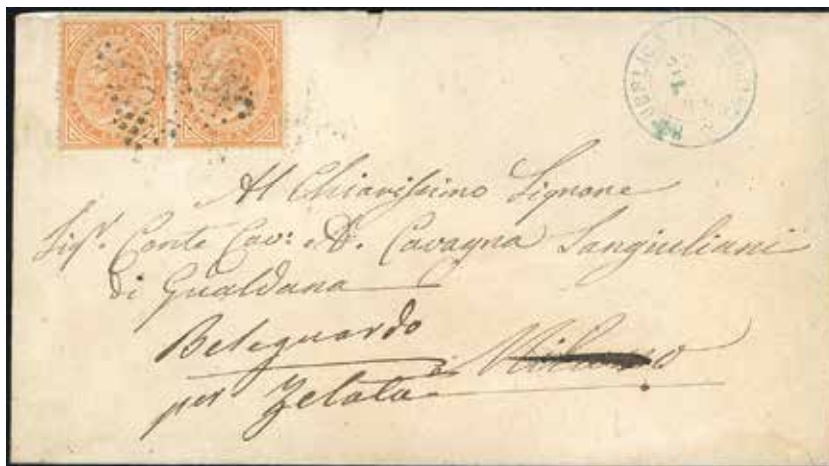 Al Chiarissimo Signore
Sigr. Conte Cav: A. Cavagna Sangiuliani
di Gualdana
Milano
Bereguardo
per Zelata